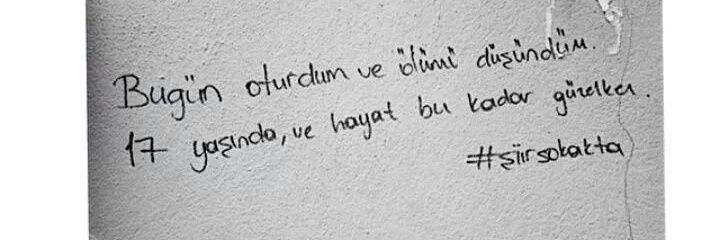 Bugün oturdum ve ölümü düşündüm.
17 yaşında, ve hayat bu kadar güzelken.
#şiirsokakta